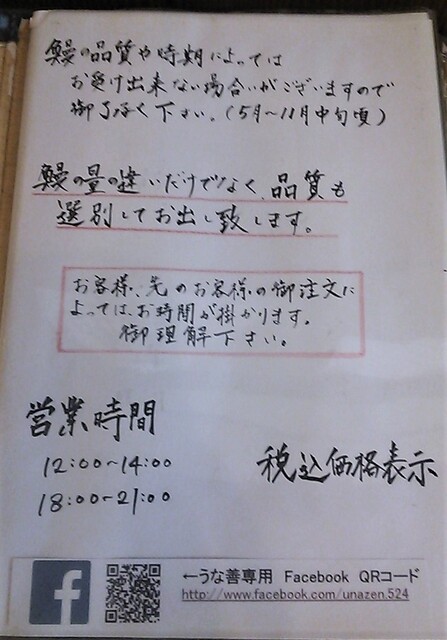 鰻の品質や時期によっては
お受け出来ない場合いがございますので
御了承く下さい。(5月～11月中旬頃)
鰻の量の違いだけでなく、品質も
選別してお出し致します。
お客様、先のお客様の御注文に
よっては、お時間が掛かります。
御理解下さい。
営業時間
12:00～14:00
18:00～21:00
税込価格表示
f
←うな善専用 Facebook QRコード
http://www.facebook.com/unazen.524